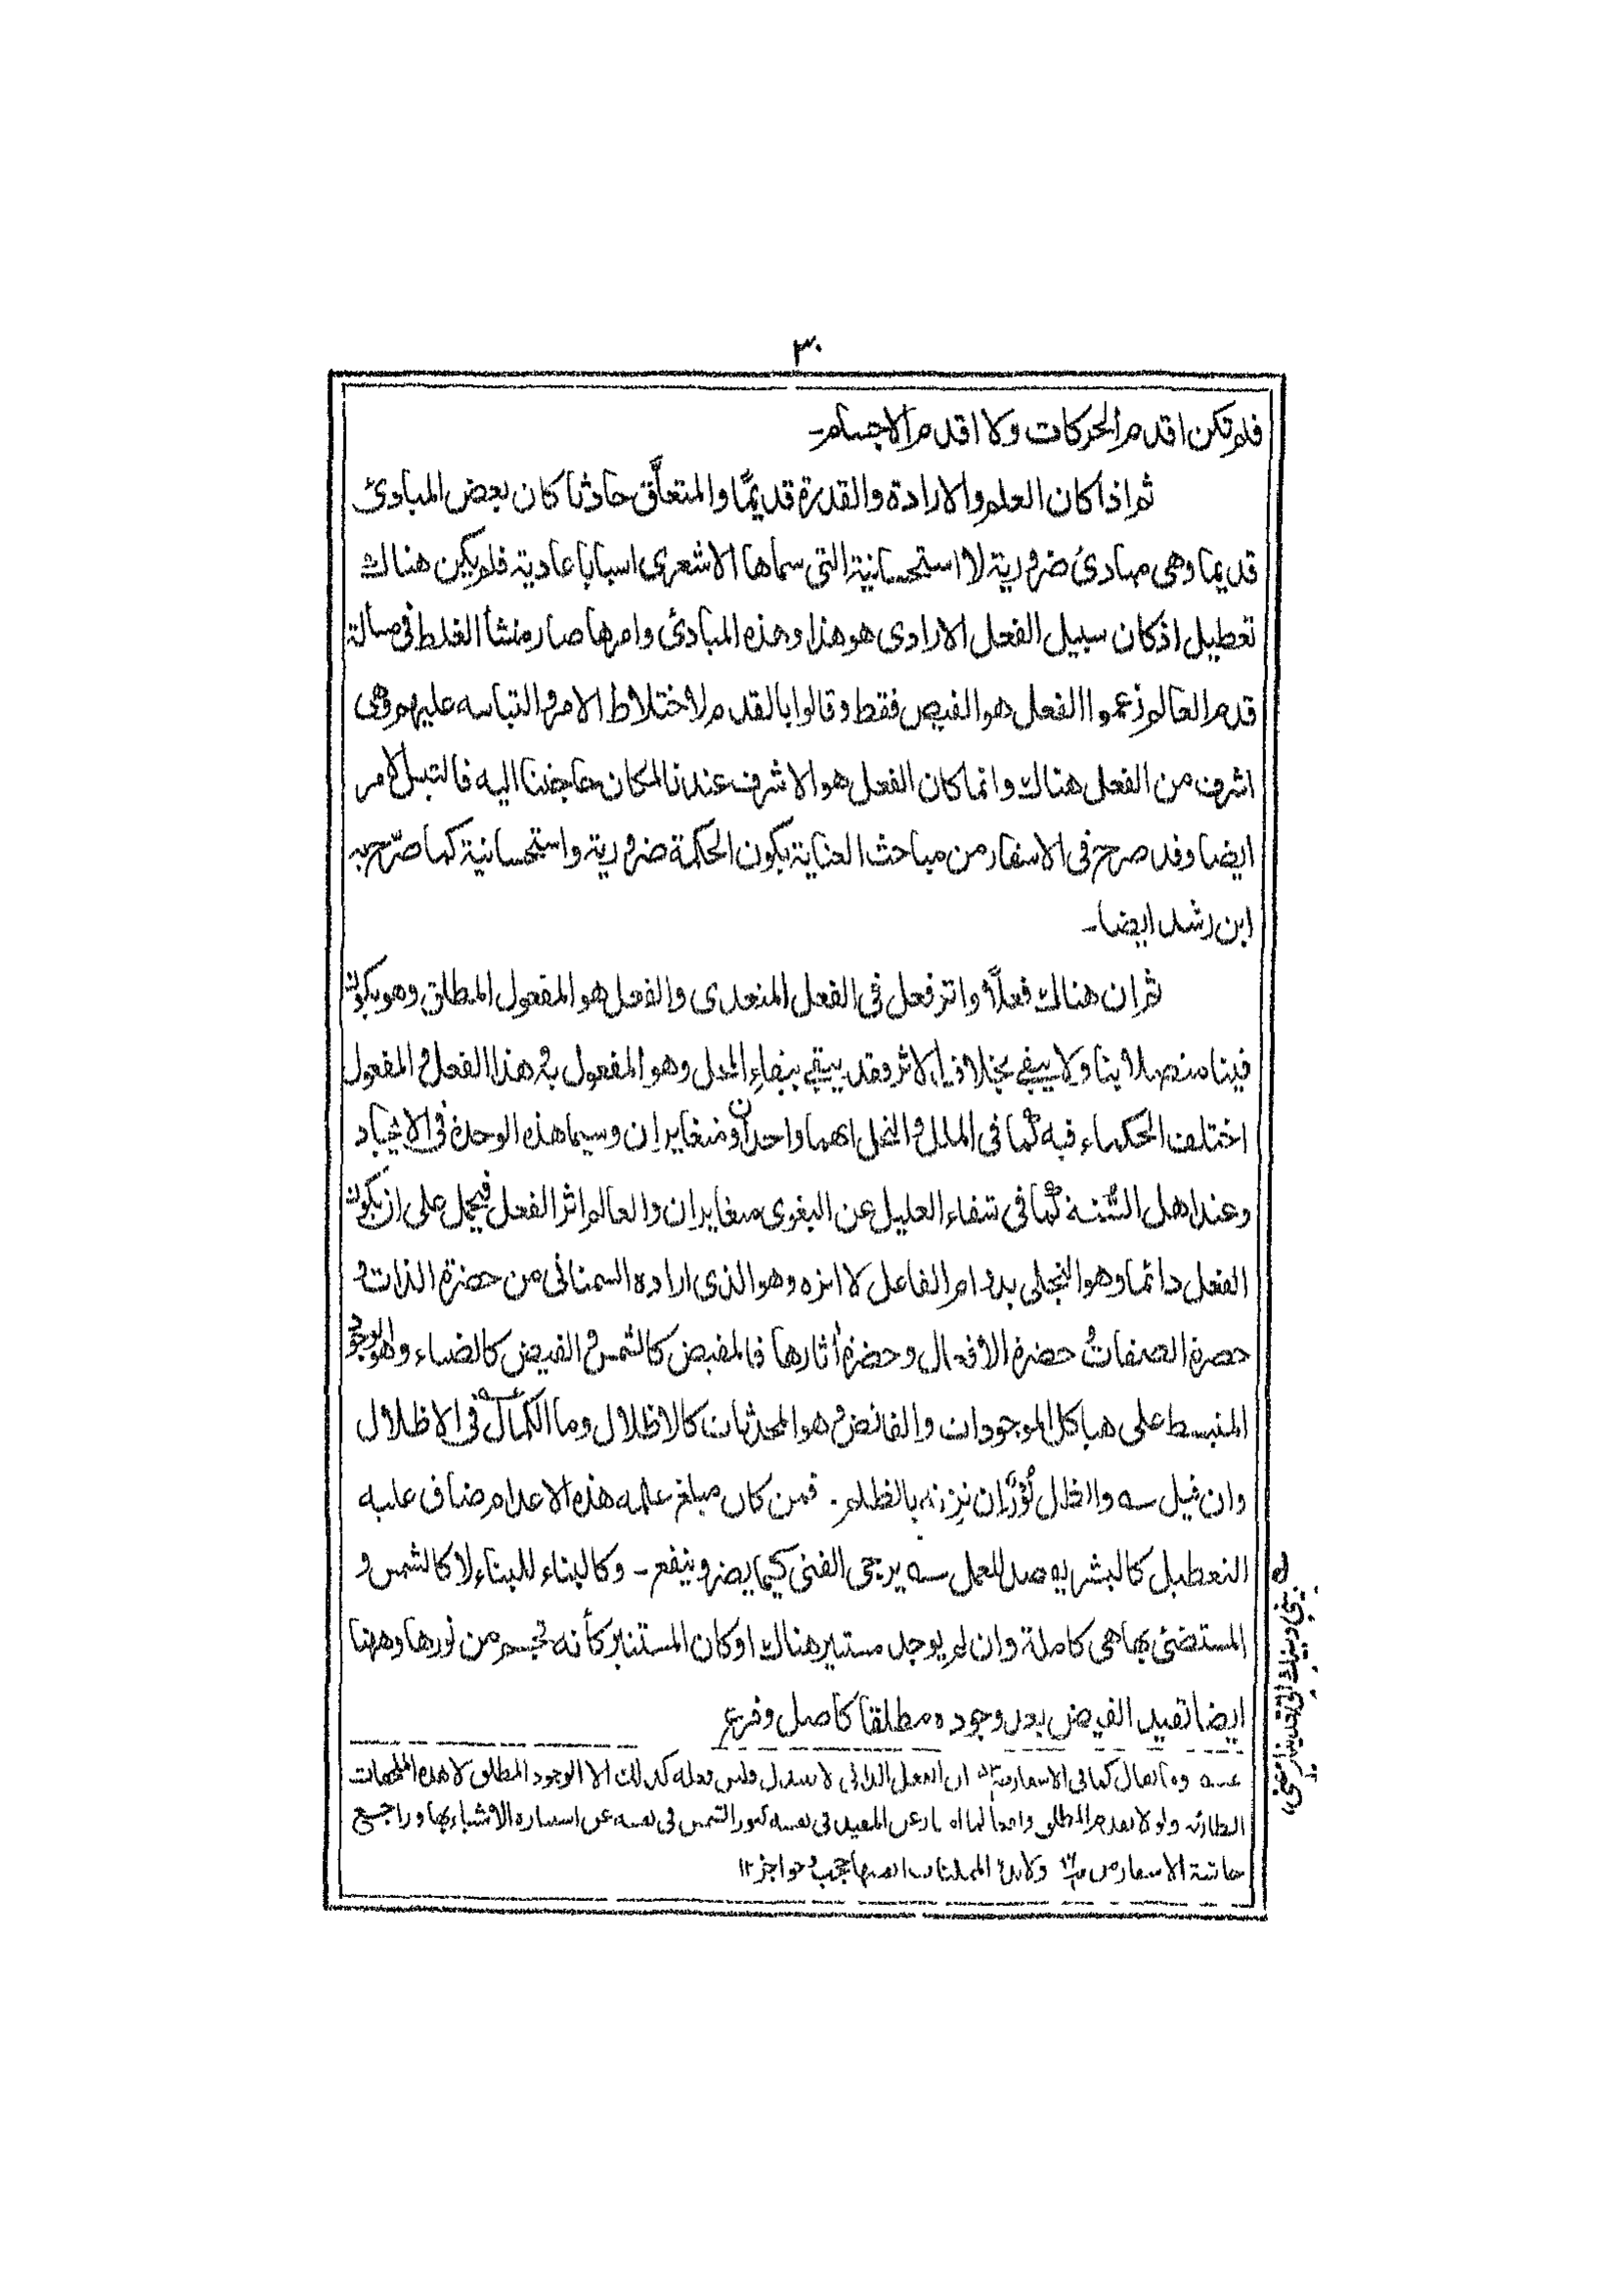 ٣٠
فلم تكن اقدم الحركات ولا اقدم الاجسام۔
ثم اذا كان العلم والارادة والقدرة قديمًا والمتعلَّق حادثا كان بعض المبادئ
قديما وهى مبادئ ضرورية لا استحسانية التى سماها الاشعرى اسبابا عادية فلم يكن هناك
تعطيل اذ كان سبيل الفعل الارادى هو هذا وهذه المبادئ وامرها صار منشأ الغلط فى مسألة
قدم العالم زعموا الفعل هو الفيض فقط وقالوا بالقدم لاختلاط الامر والتباسه عليهم وهى
اشرف من الفعل هناك وانما كان الفعل هو الاشرف عندنا لمكان حاجتنا اليه فالتبس الامر
ايضا وقد صرح فى الاسفار من مباحث العناية بكون الحكمة ضرورية واستحسانية كما صرّح به
ابن رشد ايضا۔
ثم ان هناك فعلًا واثر فعل فى الفعل المتعدى والفعل هو المفعول المطلق وهو يكون
فينا متصلا بنا ولا يبقى بخلاف الاثر فقد يبقى ببقاء المحل وهو المفعول به وهذا الفعل والمفعول
اختلف الحكماء فيه كما فى الملل والنحل انهما واحد او متغايران وسيما هذه الوحدة فى الايجاد
وعند اهل السُّنة كما فى شفاء العليل عن البغوى متغايران والعالم اثر الفعل فيحمل على ان يكون
الفعل دائما وهو التجلى بدوام الفاعل لا اثره وهو الذى اراده السمنانى من حضرة الذات و
حضرة الصفات و حضرة الافعال وحضرة أثارها فالمفيض كالشمس والفيض كالضياء وهو الوجود
المنبسط على هياكل الموجودات والفائض وهو المحدثات كالاظلال وما الكمال فى الاظلال
وان قيل والظل نُوْرٌ ان تزنه بالظلم. فمن كان مبلغ علمه هذه الاعدام ضاف عليه
التعطيل كالبشر يوصل للعمل يرجى الفتى كيما يضر وينفع۔ وكالبناء للبناء لا كالشمس و
المستضئ بها هى كاملة وان لم يوجد مستنير هناك او كان المستنير كأنه تجسم من نورها وههنا
ايضا تقيد الفيض بعد وجوده مطلقا كاصل وفرع
ان الفعل الذاتى لا يتبدل وليس فعله كذلك الا الوجود المطلق لا هذه
حاشية الاسفار من